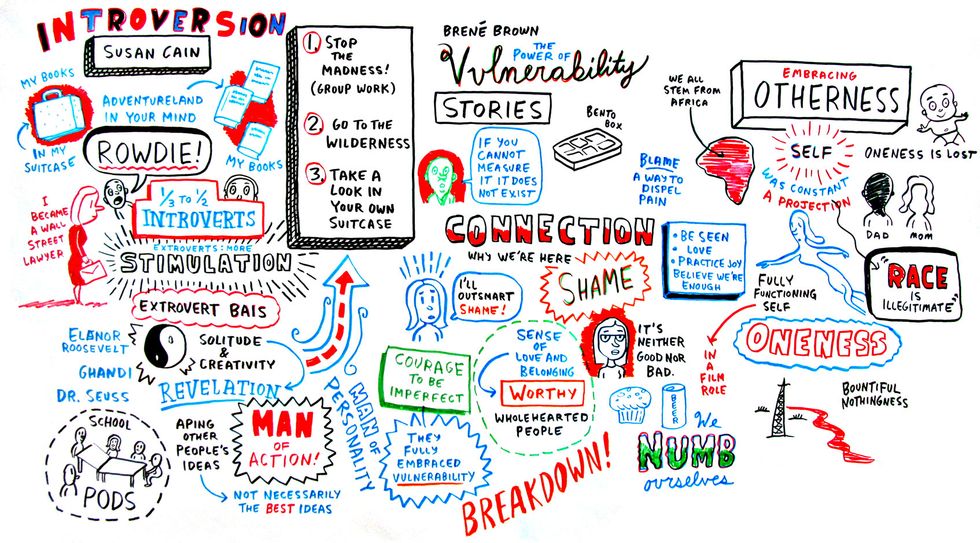 INTROVERSION
SUSAN CAIN
MY BOOKS
IN MY
SUITCASE
ADVENTURELAND
IN YOUR MIND
MY BOOKS
ROWDIE!
I
BECAME
A WALL
STREET
LAWYER
1/3 TO 1/2
INTROVERTS
EXTROVERTS: MORE
STIMULATION
EXTROVERT BAIS
ELANOR
ROOSEVELT
GHANDI
DR. SEUSS
SOLITUDE
&
CREATIVITY
REVELATION
SCHOOL
PODS
APING
OTHER
PEOPLE'S
IDEAS
NOT NECESSARILY
THE BEST IDEAS
MAN
OF
ACTION!
MAN OF
PERSONALITY
1. STOP
THE
MADNESS!
(GROUP WORK)
2. GO TO THE
WILDERNESS
3. TAKE A
LOOK IN
YOUR OWN
SUITCASE
BRENÉ BROWN
THE
POWER OF
Vulnerability
STORIES
IF YOU
CANNOT
MEASURE
IT IT DOES
NOT EXIST
BENTO
BOX
BLAME
A WAY TO
DISPEL
PAIN
CONNECTION
WHY WE'RE HERE
• BE SEEN
• LOVE
• PRACTICE JOY
BELIEVE WE'RE
ENOUGH
SHAME
I'LL
OUTSMART
SHAME!
IT'S
NEITHER
GOOD NOR
BAD.
COURAGE
TO BE
IMPERFECT
SENSE
OF
LOVE AND
BELONGING
WORTHY
WHOLEHEARTED
PEOPLE
THEY
FULLY
EMBRACED
VULNERABILITY
BREAKDOWN!
BEER
We
NUMB
ourselves
WE ALL
STEM FROM
AFRICA
EMBRACING
OTHERNESS
SELF
WAS CONSTANT
A PROJECTION
ONENESS IS LOST
DAD
MOM
"RACE
IS
ILLEGITIMATE"
FULLY
FUNCTIONING
SELF
IN
A FILM
ROLE
ONENESS
BOUNTIFUL
NOTHINGNESS